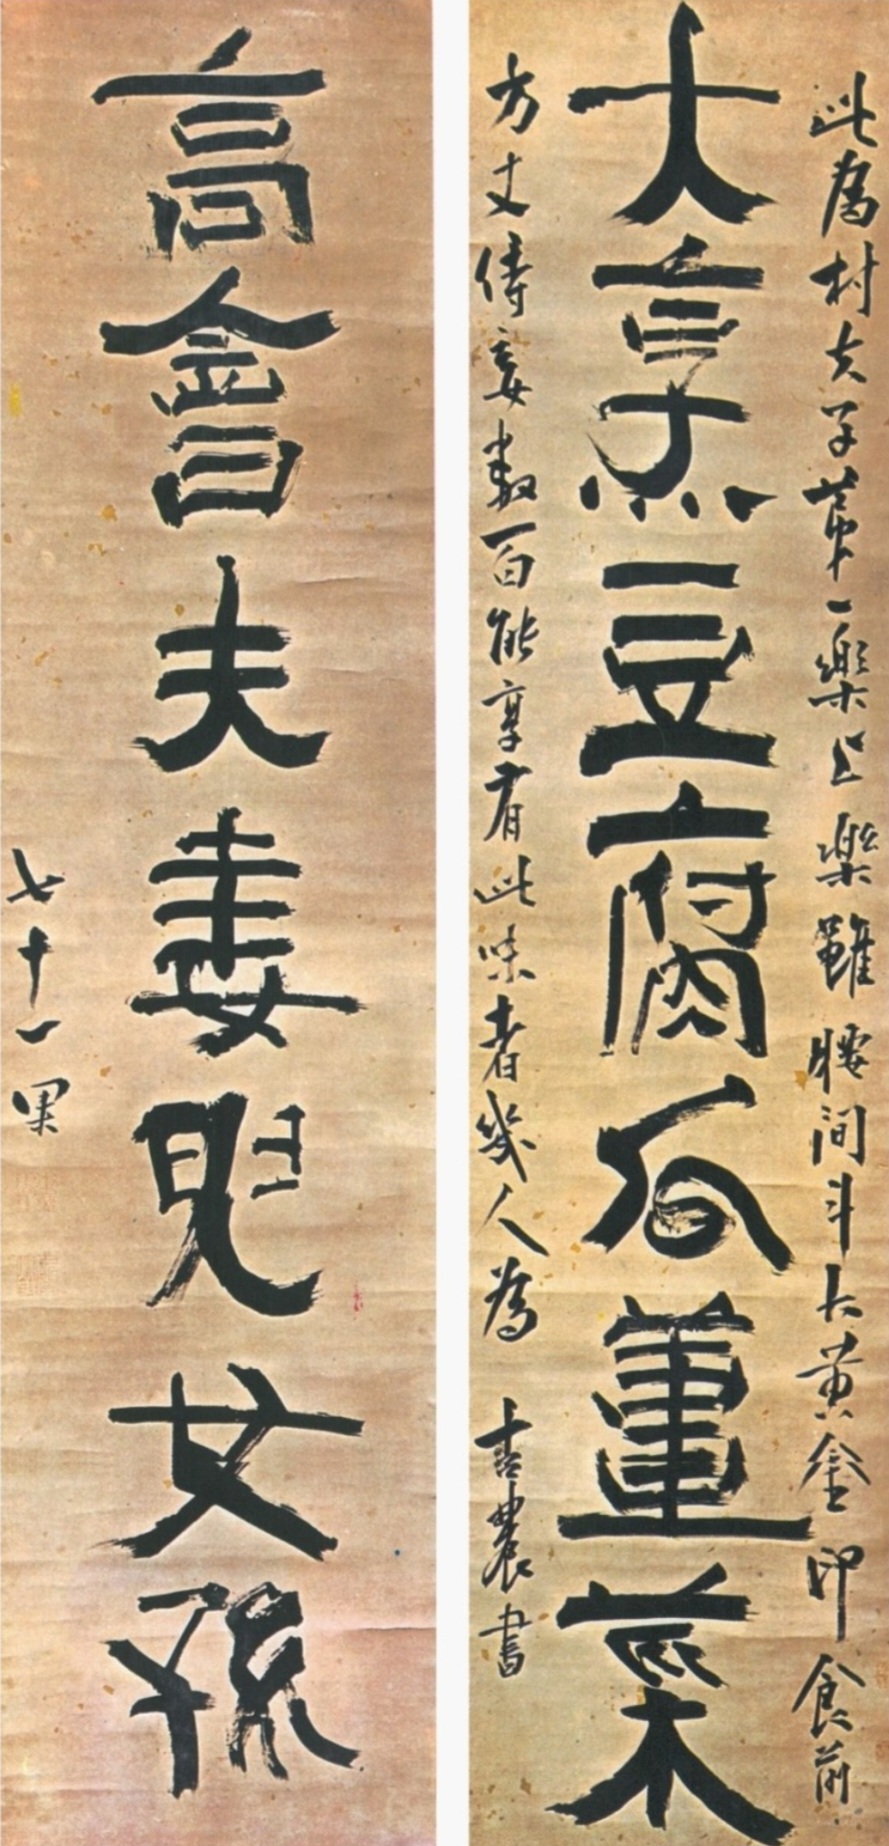 此為村夫子第一樂上樂雖腰間斗大黃金印食前
大烹豆腐瓜薑菜
方丈侍妾數百能享有此味者幾人為 杏農書
高會夫妻兒女孫
七十一果